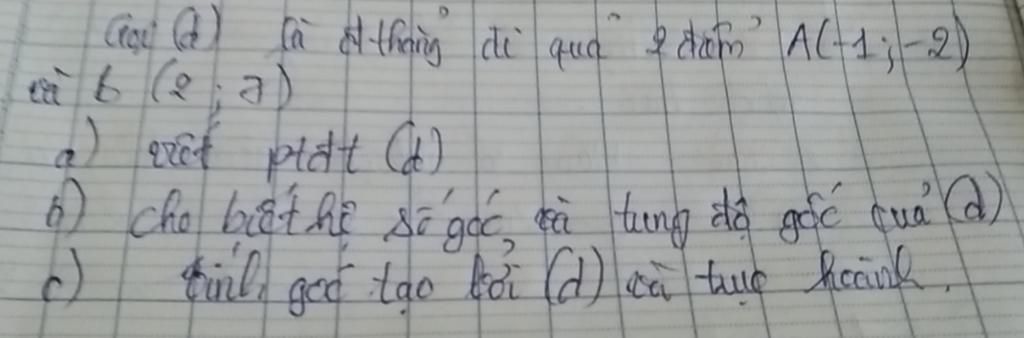 Gọi (d) là đt thẳng đi qua 2 điểm A(-1; -2)
và b (2; 7)
a) viết ptđt (d)
b) cho biết hệ số góc và tung độ gốc của (d)
c) tính góc tạo bởi (d) và trục hoành.